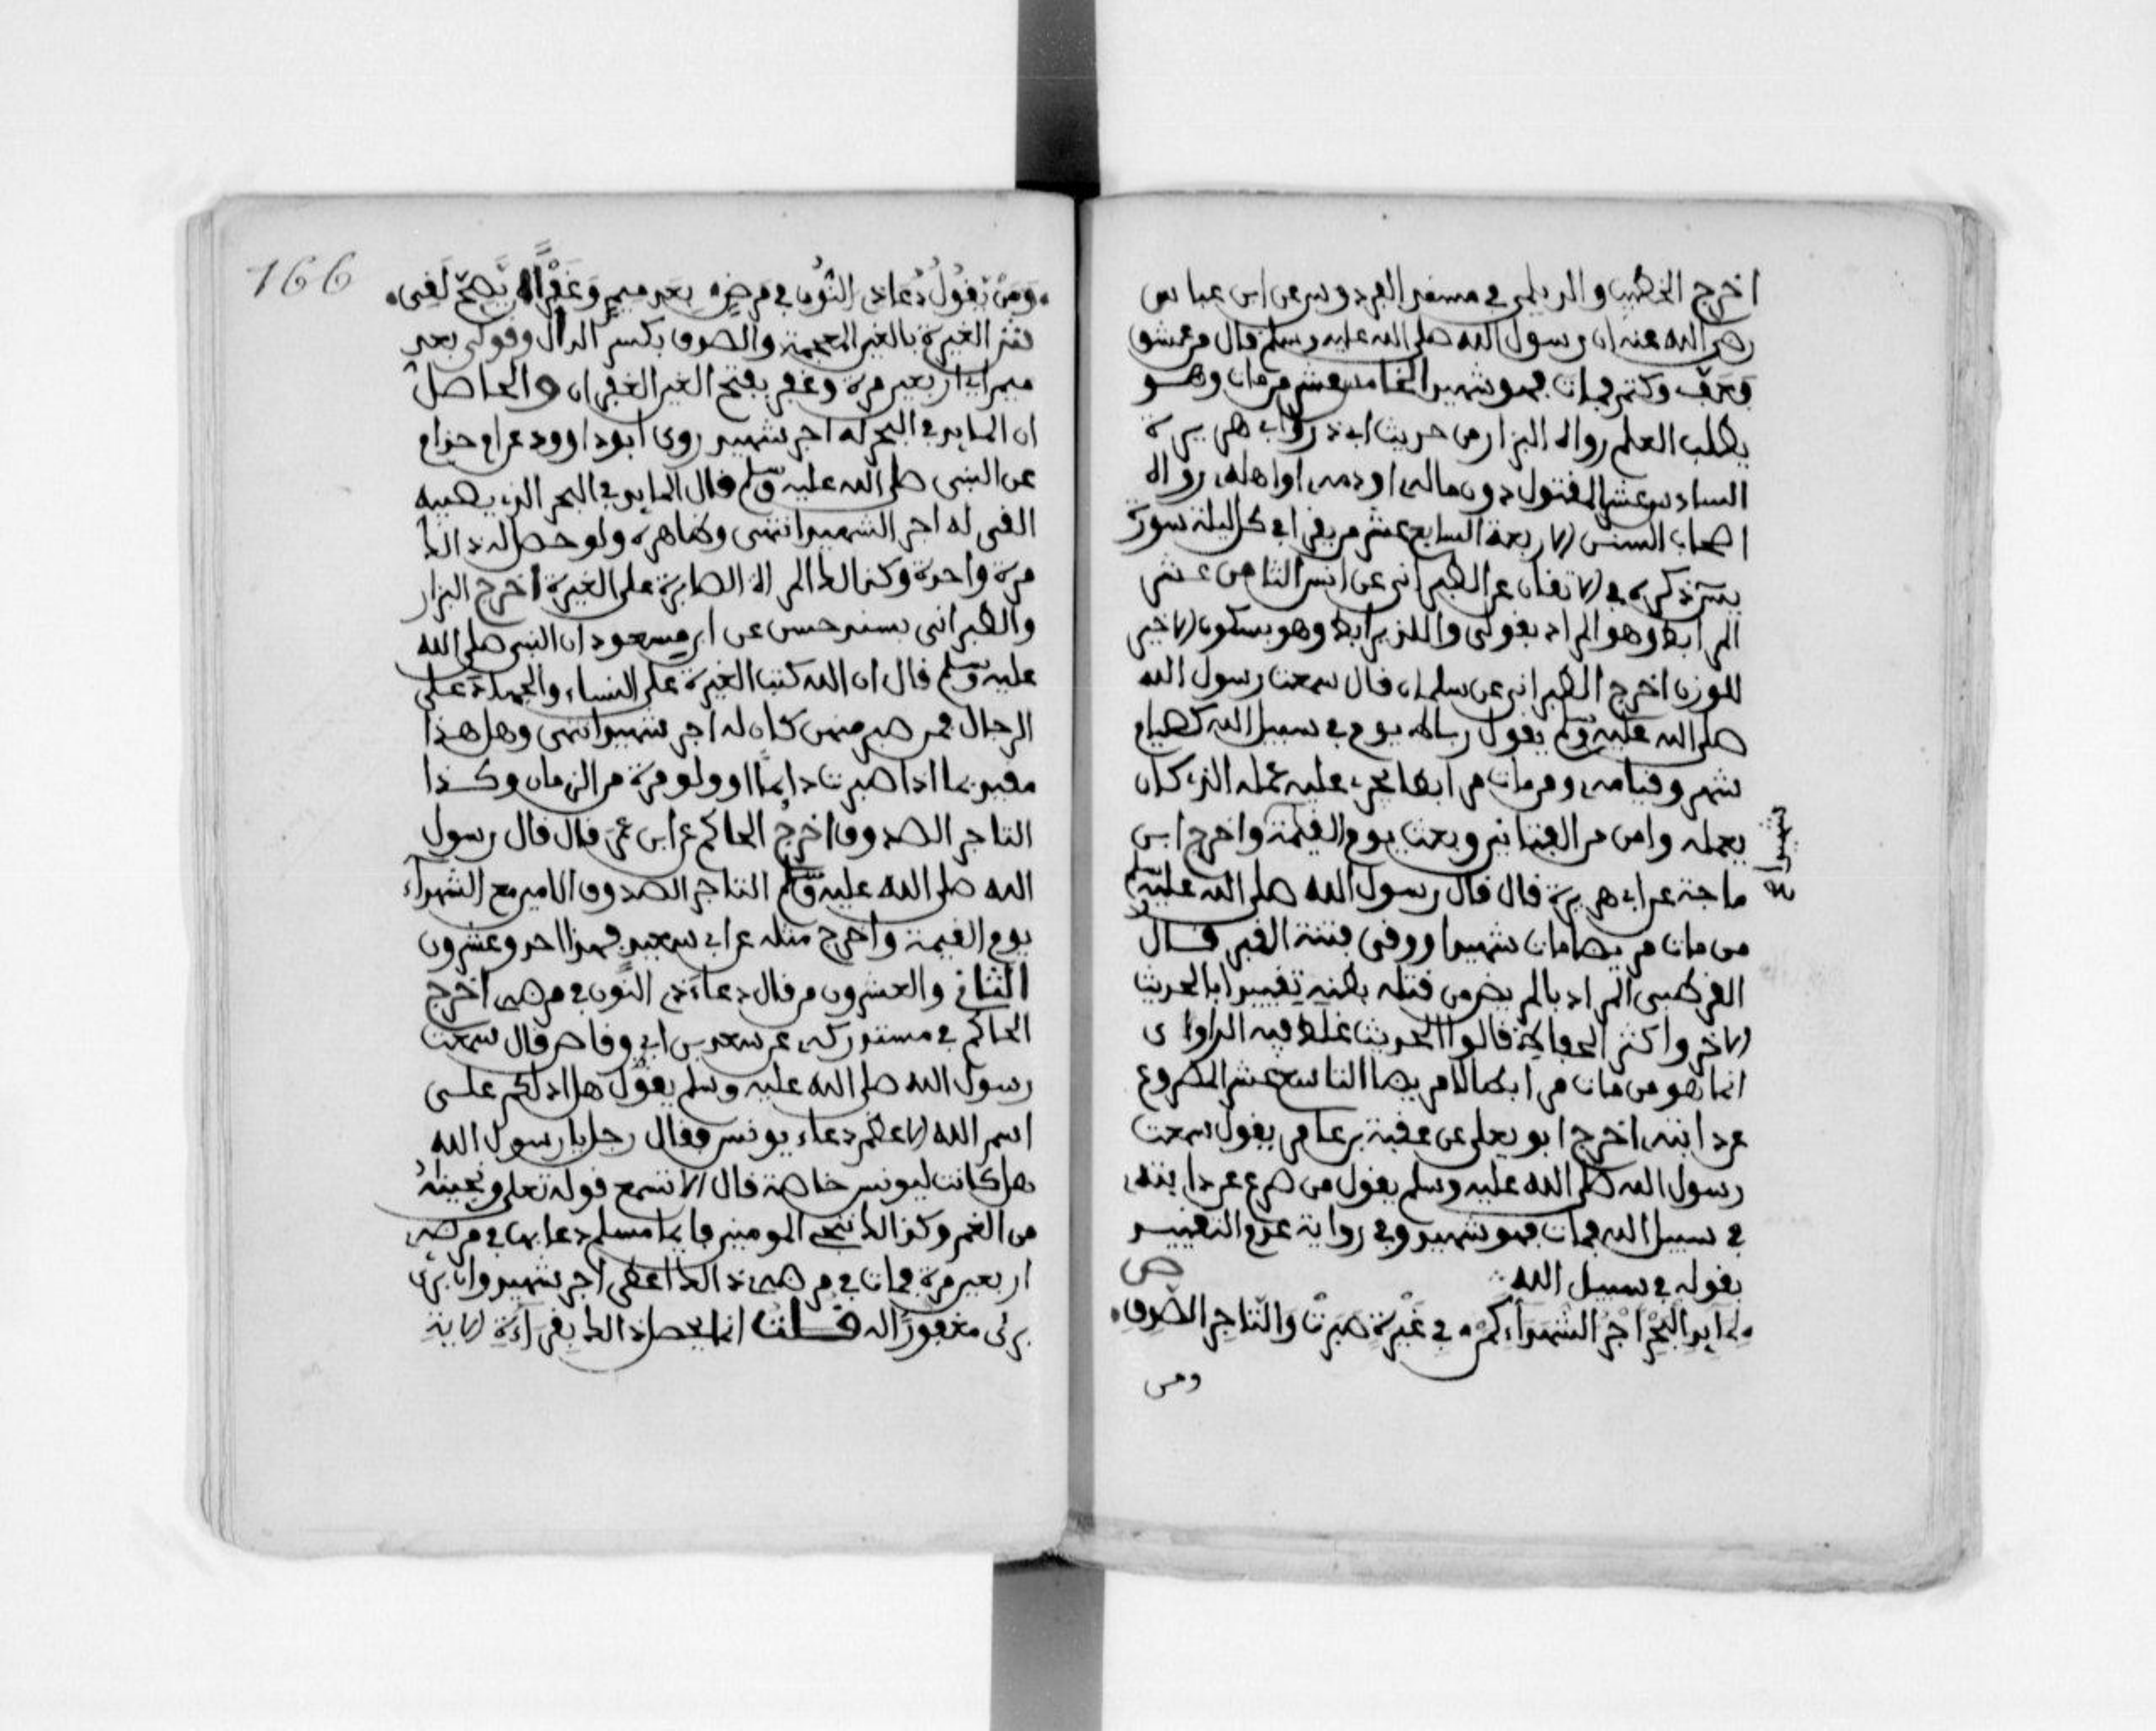 اخرج الخطيب والديلمي في مسند الفردوس عن ابن عباس
رضي الله عنه ان رسول الله صلى الله عليه وسلم قال من عشق
فعف وكتم فمات فهو شهيد الخامس عشر من مات وهو
يطلب العلم رواه البزار من حديث ابي ذر وابي هريرة
السادس عشر المقتول دون ماله او دمه او اهله رواه
اصحاب السنن الاربعة السابع عشر من يقرا في كل ليلة سورة
يس ذكره في الاتقان عن الطبراني عن انس الثامن عشر
المرابط وهو المراد بقولي والذ يرابط وهو بسكون الاخير
للوزن اخرج الطبراني عن سلمان قال سمعت رسول الله
صلى الله عليه وسلم يقول رباط يوم في سبيل الله كصيام
شهر وقيامه ومن مات مرابطا يجري عليه عمله الذي كان
يعمله وامن من الفتانين وبعث يوم القيمة واخرج ابن
شهيدا
ماجة عن ابي هريرة قال قال رسول الله صلى الله عليه وسلم
من مات مريضا مات شهيدا ووقي فتنة القبر قال
القرطبي المراد بالمريض من قتله بطنه تقييدا بالحديث
الاخر واكثر الحفاظ قالوا الحديث غلط فيه الراوي
انما هو من مات مرابطا لا مريضا التاسع عشر المصروع
عن دابته اخرج ابو يعلى عن عقبة بن عامر يقول سمعت
رسول الله صلى الله عليه وسلم يقول من صرع عن دابته
في سبيل الله فمات فهو شهيد وفي رواية عدم التقييد
بقوله في سبيل الله
ص
لمايد البحر اجر الشهداء كمن في غيرة صبرت والتاجر الصدق
ومن
166
ومن يقول دعا ذي النون في مرضه بعد ميم وغفرا له يصح لفى
فش الغيرة بالغين المعجمة والصدق بكسر الدال وقولي بعد
ميم اي اربعين مرة وغفر بفتح الغين الغفران والحاصل
ان المايد في البحر له اجر شهيد روى ابو داوود عن ام حرام
عن النبي صلى الله عليه وسلم قال المايد في البحر الذي يصيبه
القي له اجر الشهيد انتهى وظاهره ولو حصل له ذالك
مرة واحدة وكذالك المراة الصابرة على الغيرة اخرج البزار
والطبراني بسند حسن عن ابن مسعود ان النبي صلى الله
عليه وسلم قال ان الله كتب الغيرة على النساء والجهاد على
الرجال فمن صبر منهن كان له اجر شهيد انتهى وهل هذا
مقيد بما اذا صبرت دايما او ولو مرة من الزمان وكذا
التاجر الصدوق اخرج الحاكم عن ابن عمر قال قال رسول
الله صلى الله عليه وسلم التاجر الصدوق الامين مع الشهداء
يوم القيمة واخرج مثله عن ابي سعيد فهذا احد وعشرون
الثاني والعشرون من قال دعاء ذي النون في مرضه اخرج
الحاكم في مستدركه عن سعد بن ابي وقاص قال سمعت
رسول الله صلى الله عليه وسلم يقول هل ادلكم على
اسم الله الاعظم دعاء يونس فقال رجل يا رسول الله
هل كانت ليونس خاصة قال الا تسمع قوله تعلى ونجيناه
من الغم وكذالك ننجي المومنين فايما مسلم دعا بها في مرضه
اربعين مرة فمات في مرضه ذالك اعطي اجر شهيد وان برئ
برئ مغفورا له قلت انما يحصل ذالك بقراءة الاية